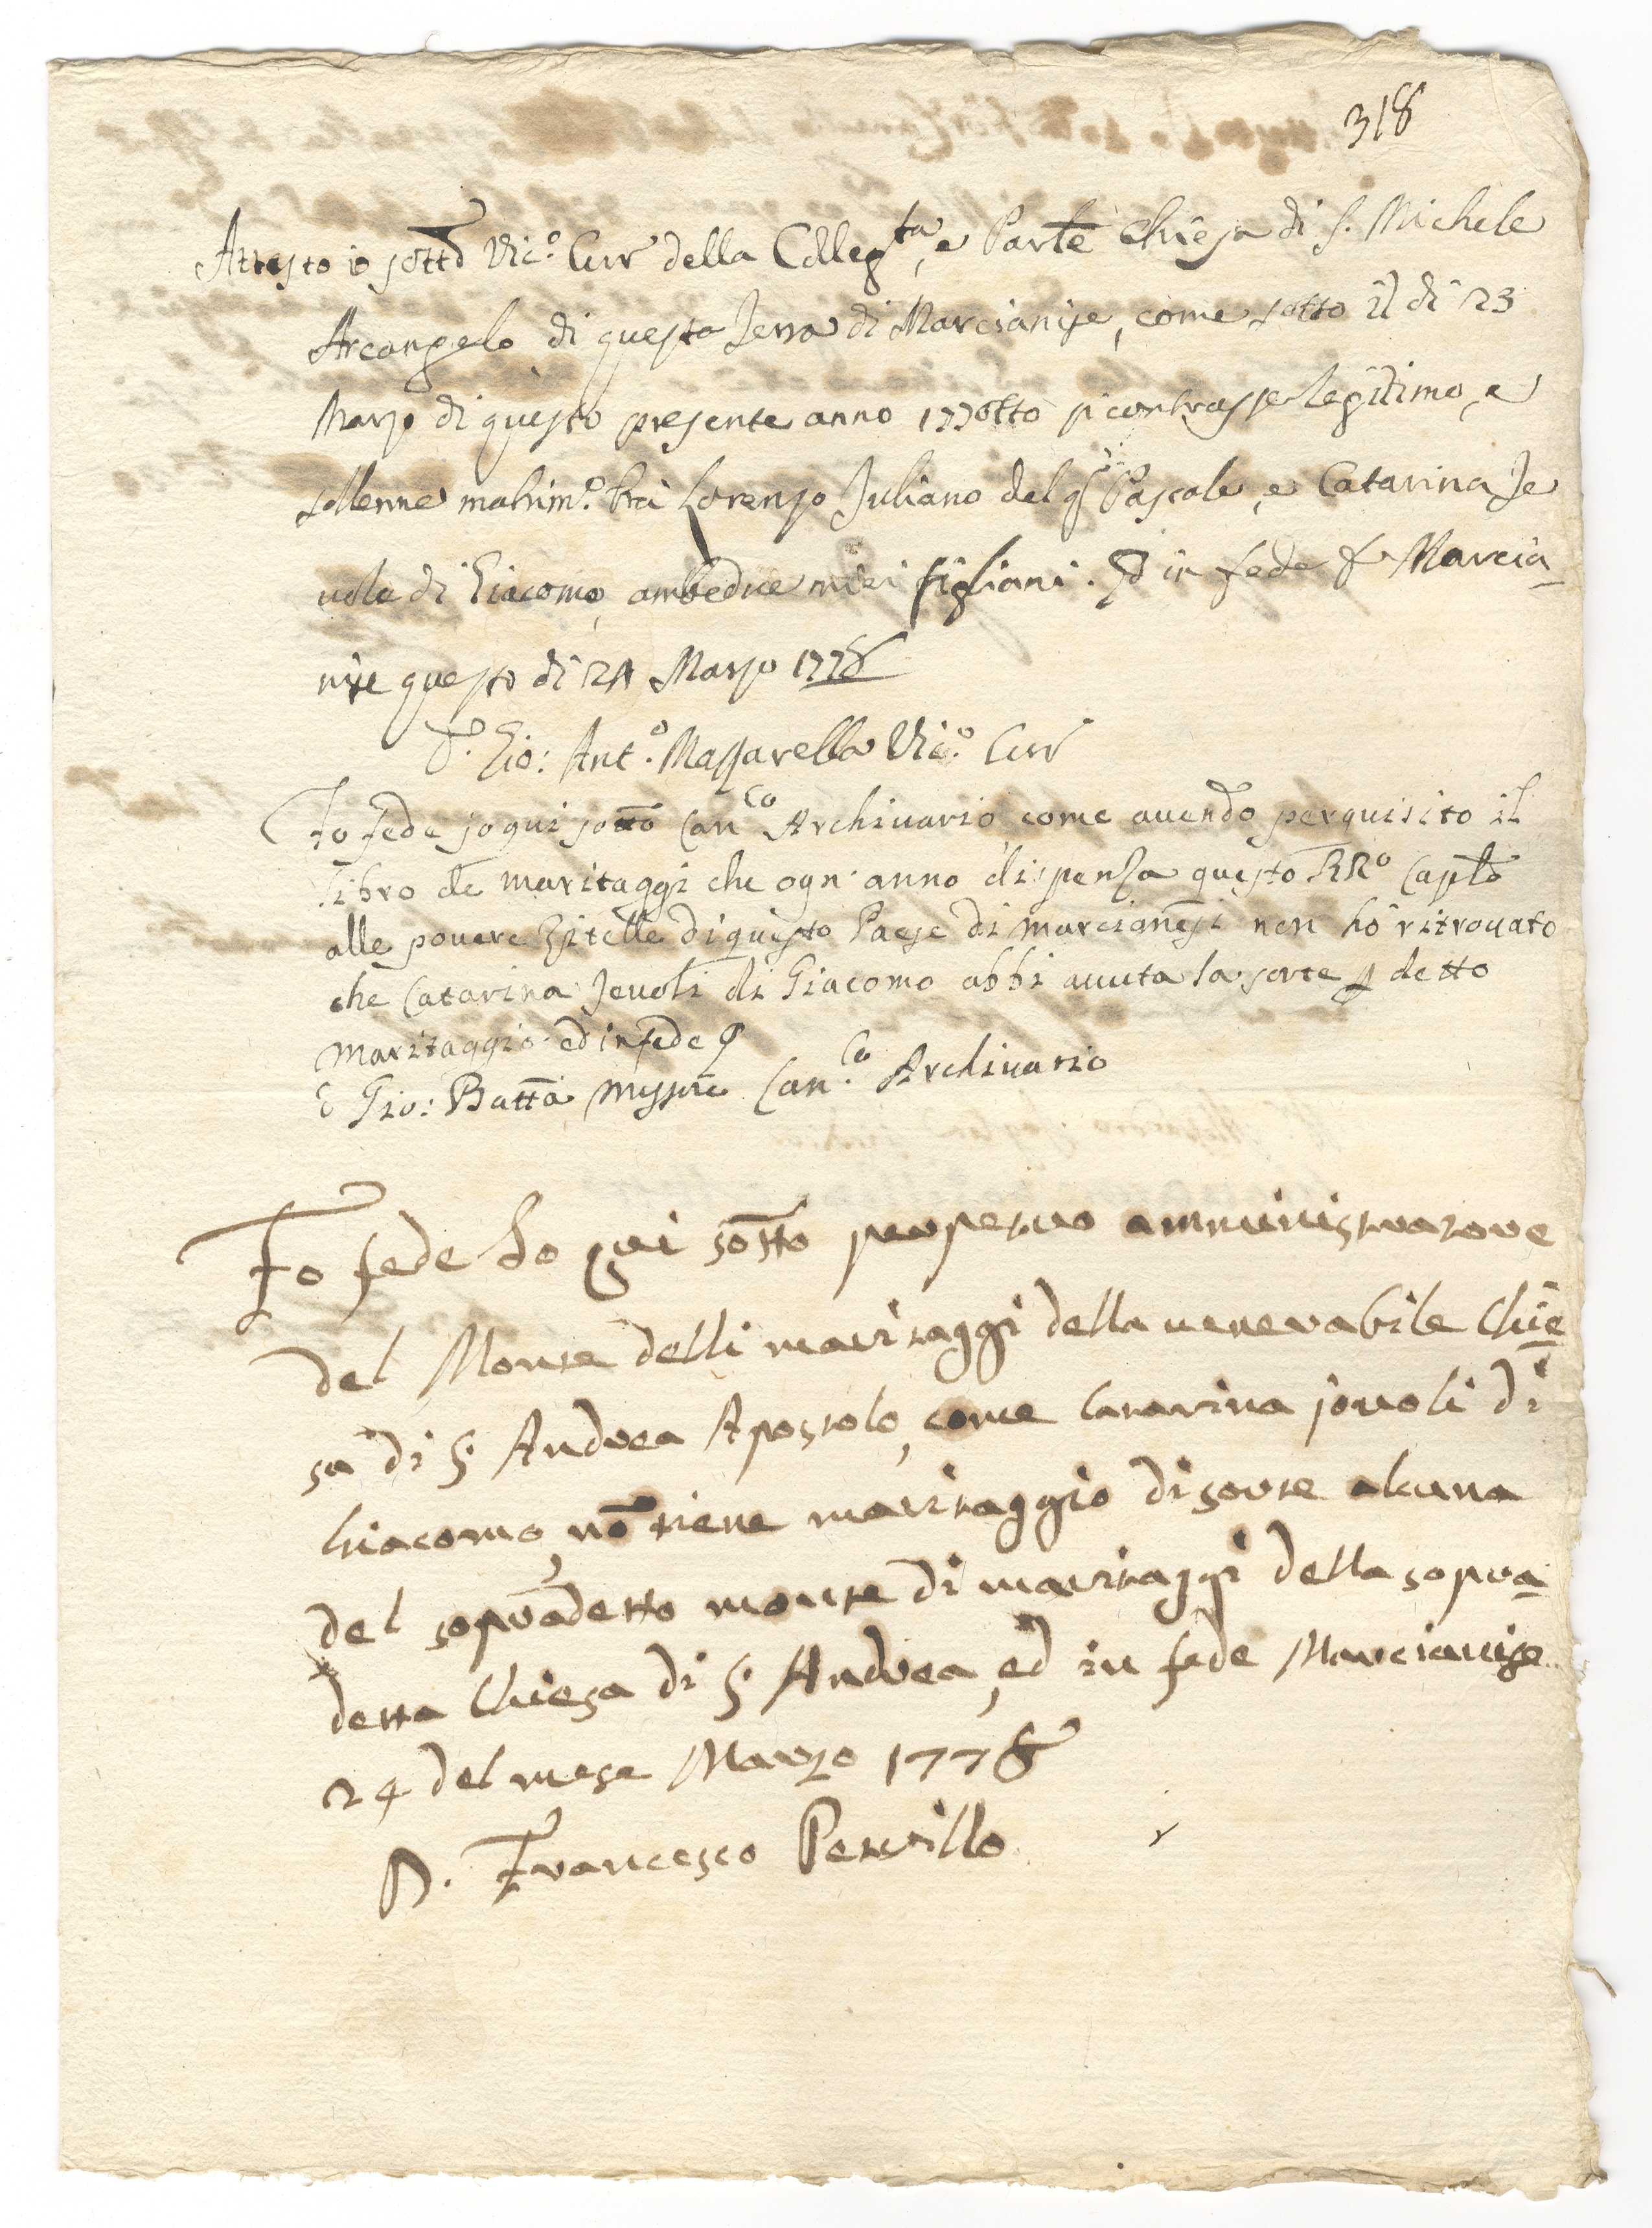 318
Attesto io sotto Vic.° Cur della Colleg.ta, e Parle Chiesa di S. Michele
Arcangelo di questa Terra di Marcianise, come sotto il di 23
Marzo di questo presente anno 177otto si contrasse legitimo, e
sollenne matrim.° trà Lorenzo Juliano del q.m Pascale, e Catarina Je
vole di Giacomo, ambedue miei figliani. Ed in fede & Marcia-
nise questo di 24 Marzo 1778
D. Gio: Ant.° Mazzarella Vic.° Cur
Fo fede jo qui sotto Can.co Archivario come avendo perquisito il
libro de maritaggi che ogn' anno dispenza questo RR.° Caplo
alle povere Zitelle di questo Paese di Marcianesi non hò ritrovato
che Catarina Jevoli di Giacomo abbi avuta la sorte p detto
Maritaggio ed in fede
D Gio: Batta Can.co Archivario
Fo fede Io qui sotto perpetuo amministratore
del Monte delli maritaggi della venerabile Chie
sa di S. Andrea Apostolo, come Catarina jovoli di
Giacomo, nō tiene maritaggio di sorte alcuna
del sopradetto monte di maritaggi della sopra-
detta Chiesa di S. Andrea, ed in fede Marcianise
24 del mese Marzo 1778
D. Francesco Petrillo